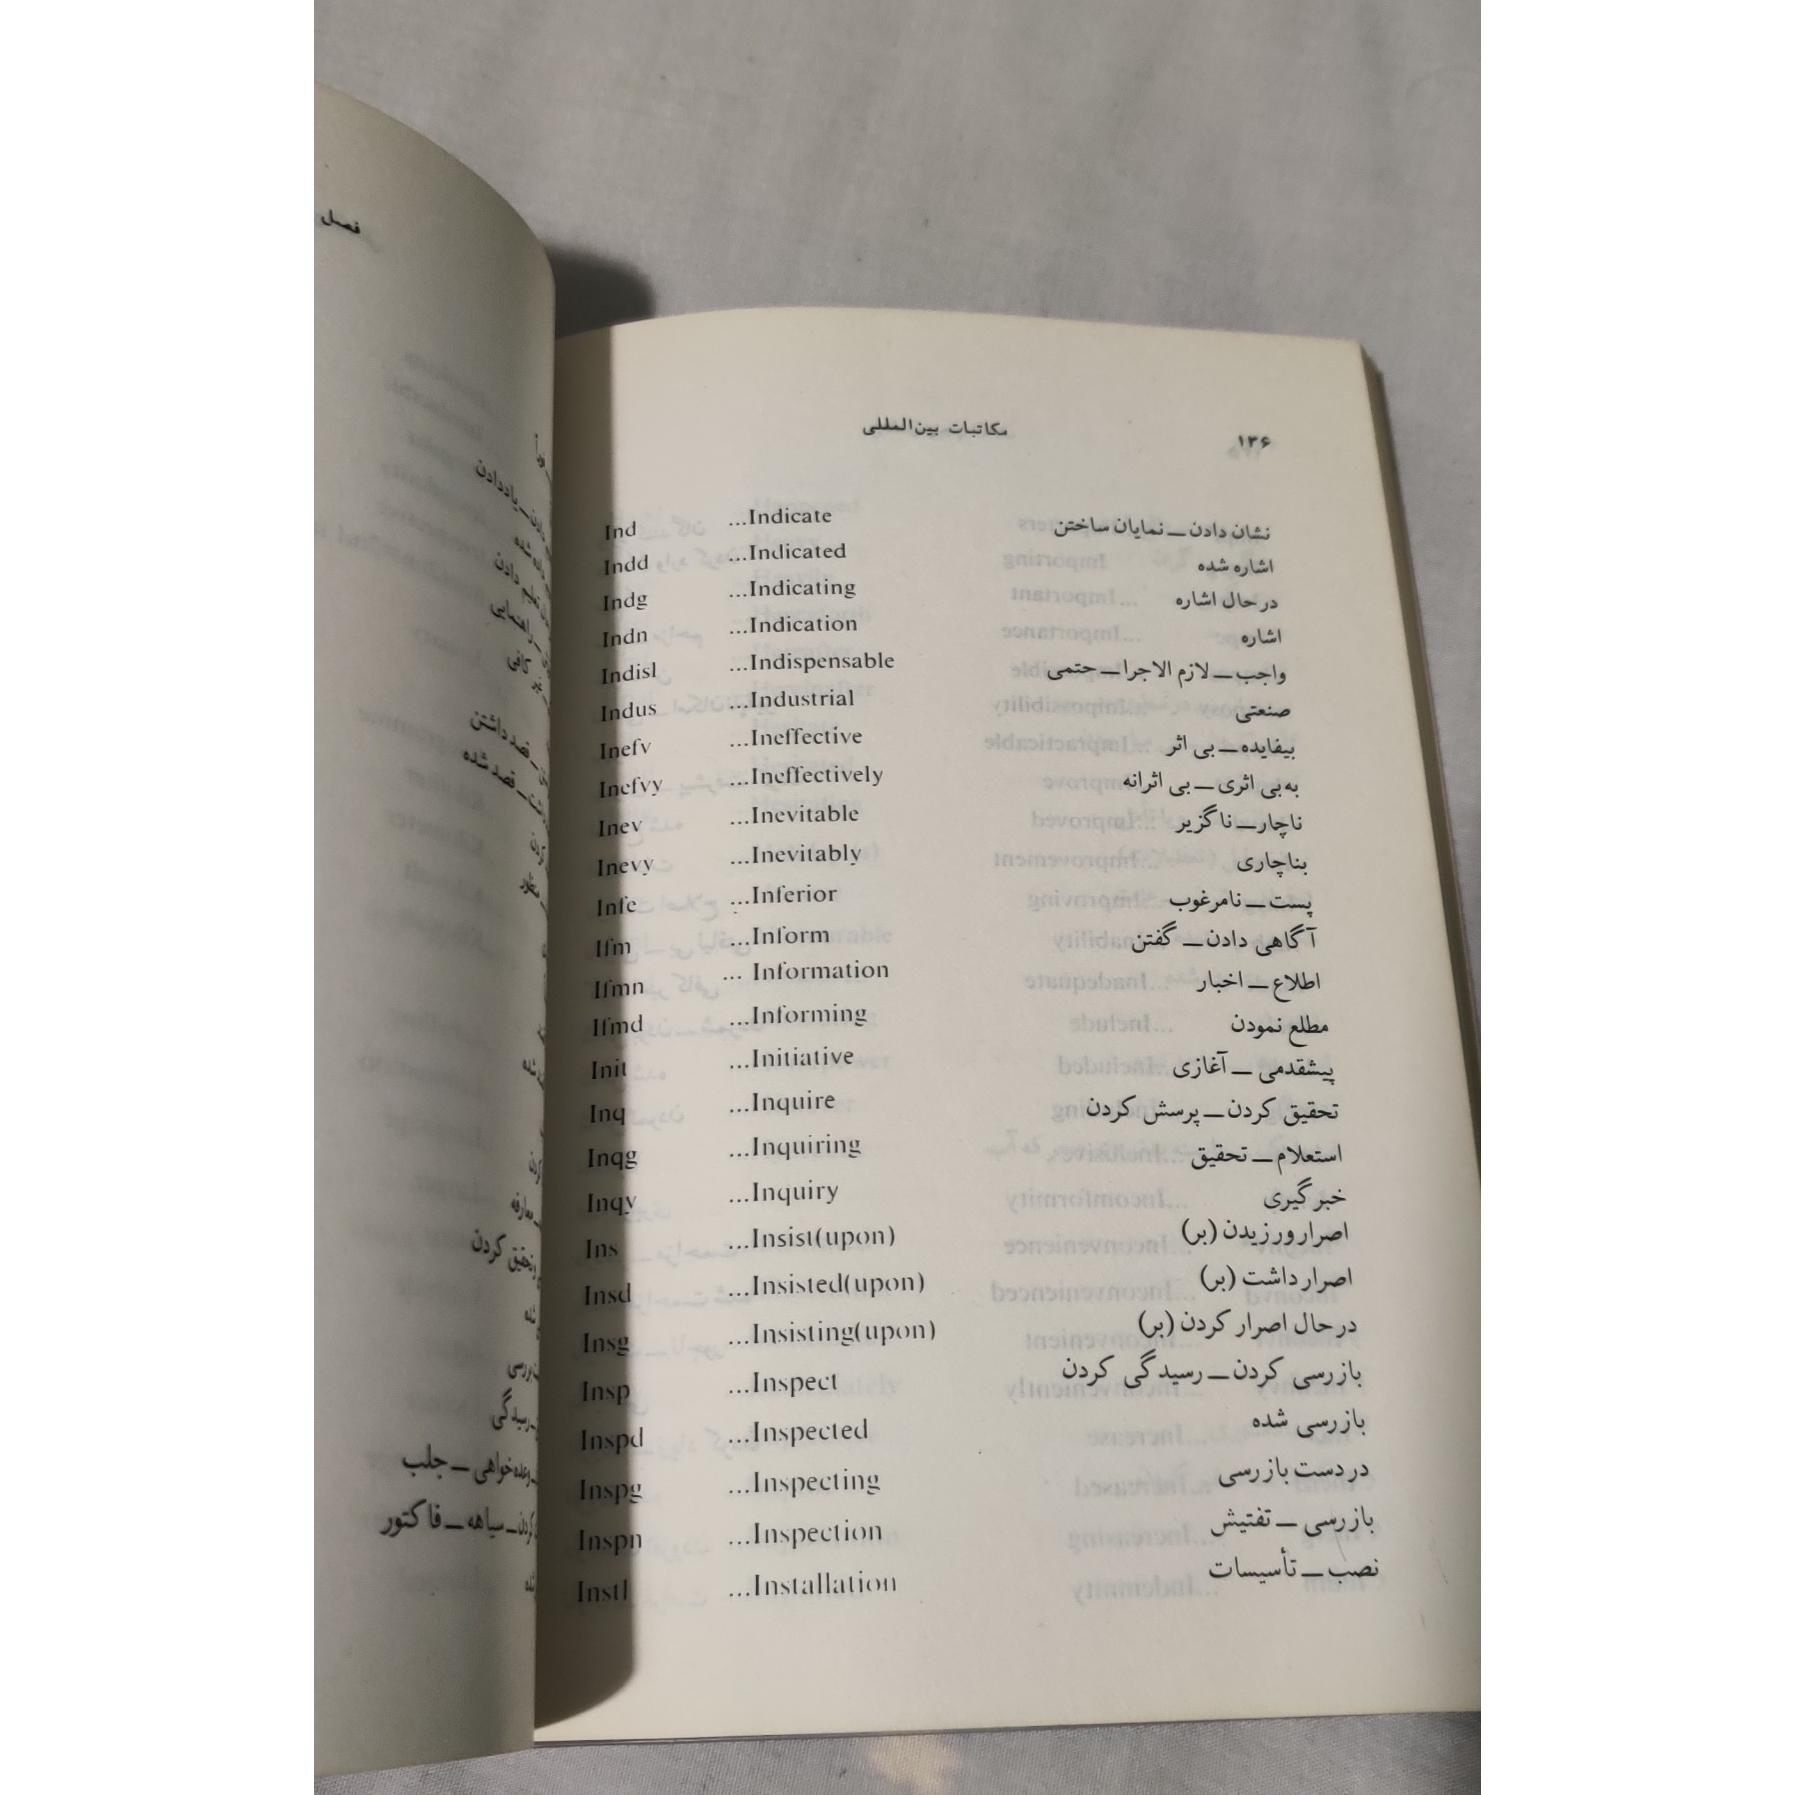 فصل
یاددادن
شده
تعلیم دادن
راهنمایی
غیر کافی
قصد داشتن
قصد شده
کردن
منظور
شده
کردن
معارفه
وتحقیق کردن
شده
بررسی
رسیدگی
وعده‌خواهی — جلب
کردن — سیاهه — فاکتور
شده
۱۳۶ مکاتبات بین‌المللی
Ind ...Indicate نشان دادن — نمایان ساختن
Indd ...Indicated اشاره شده
Indg ...Indicating در حال اشاره
Indn ...Indication اشاره
Indisl ...Indispensable واجب — لازم الاجرا — حتمی
Indus ...Industrial صنعتی
Inefv ...Ineffective بیفایده — بی اثر
Inefvy ...Ineffectively به‌بی اثری — بی اثرانه
Inev ...Inevitable ناچار — ناگزیر
Inevy ...Inevitably بناچاری
Infe ...Inferior پست — نامرغوب
Ifm ...Inform آگاهی دادن — گفتن
Ifmn ... Information اطلاع — اخبار
Ifmd ...Informing مطلع نمودن
Init ...Initiative پیشقدمی — آغازی
Inq ...Inquire تحقیق کردن — پرسش کردن
Inqg ...Inquiring استعلام — تحقیق
Inqy ...Inquiry خبرگیری
Ins ...Insist(upon) اصرارورزیدن (بر)
Insd ...Insisted(upon) اصرارداشت (بر)
Insg ...Insisting(upon) درحال اصرار کردن (بر)
Insp ...Inspect بازرسی کردن — رسیدگی کردن
Inspd ...Inspected بازرسی شده
Inspg ...Inspecting دردست بازرسی
Inspn ...Inspection بازرسی — تفتیش
Instl ...Installation نصب — تأسیسات